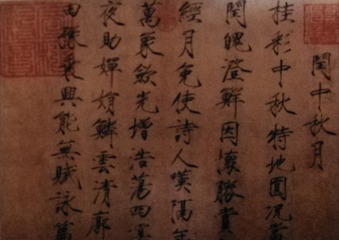 閏中秋月
桂彩中秋特地圓況
閏魄澄鮮因懷勝賞
經月免使詩人嘆隔年
萬象歛光增浩蕩四
夜助嬋娟鱗雲清廓
田豫乘興能無賦詠篇